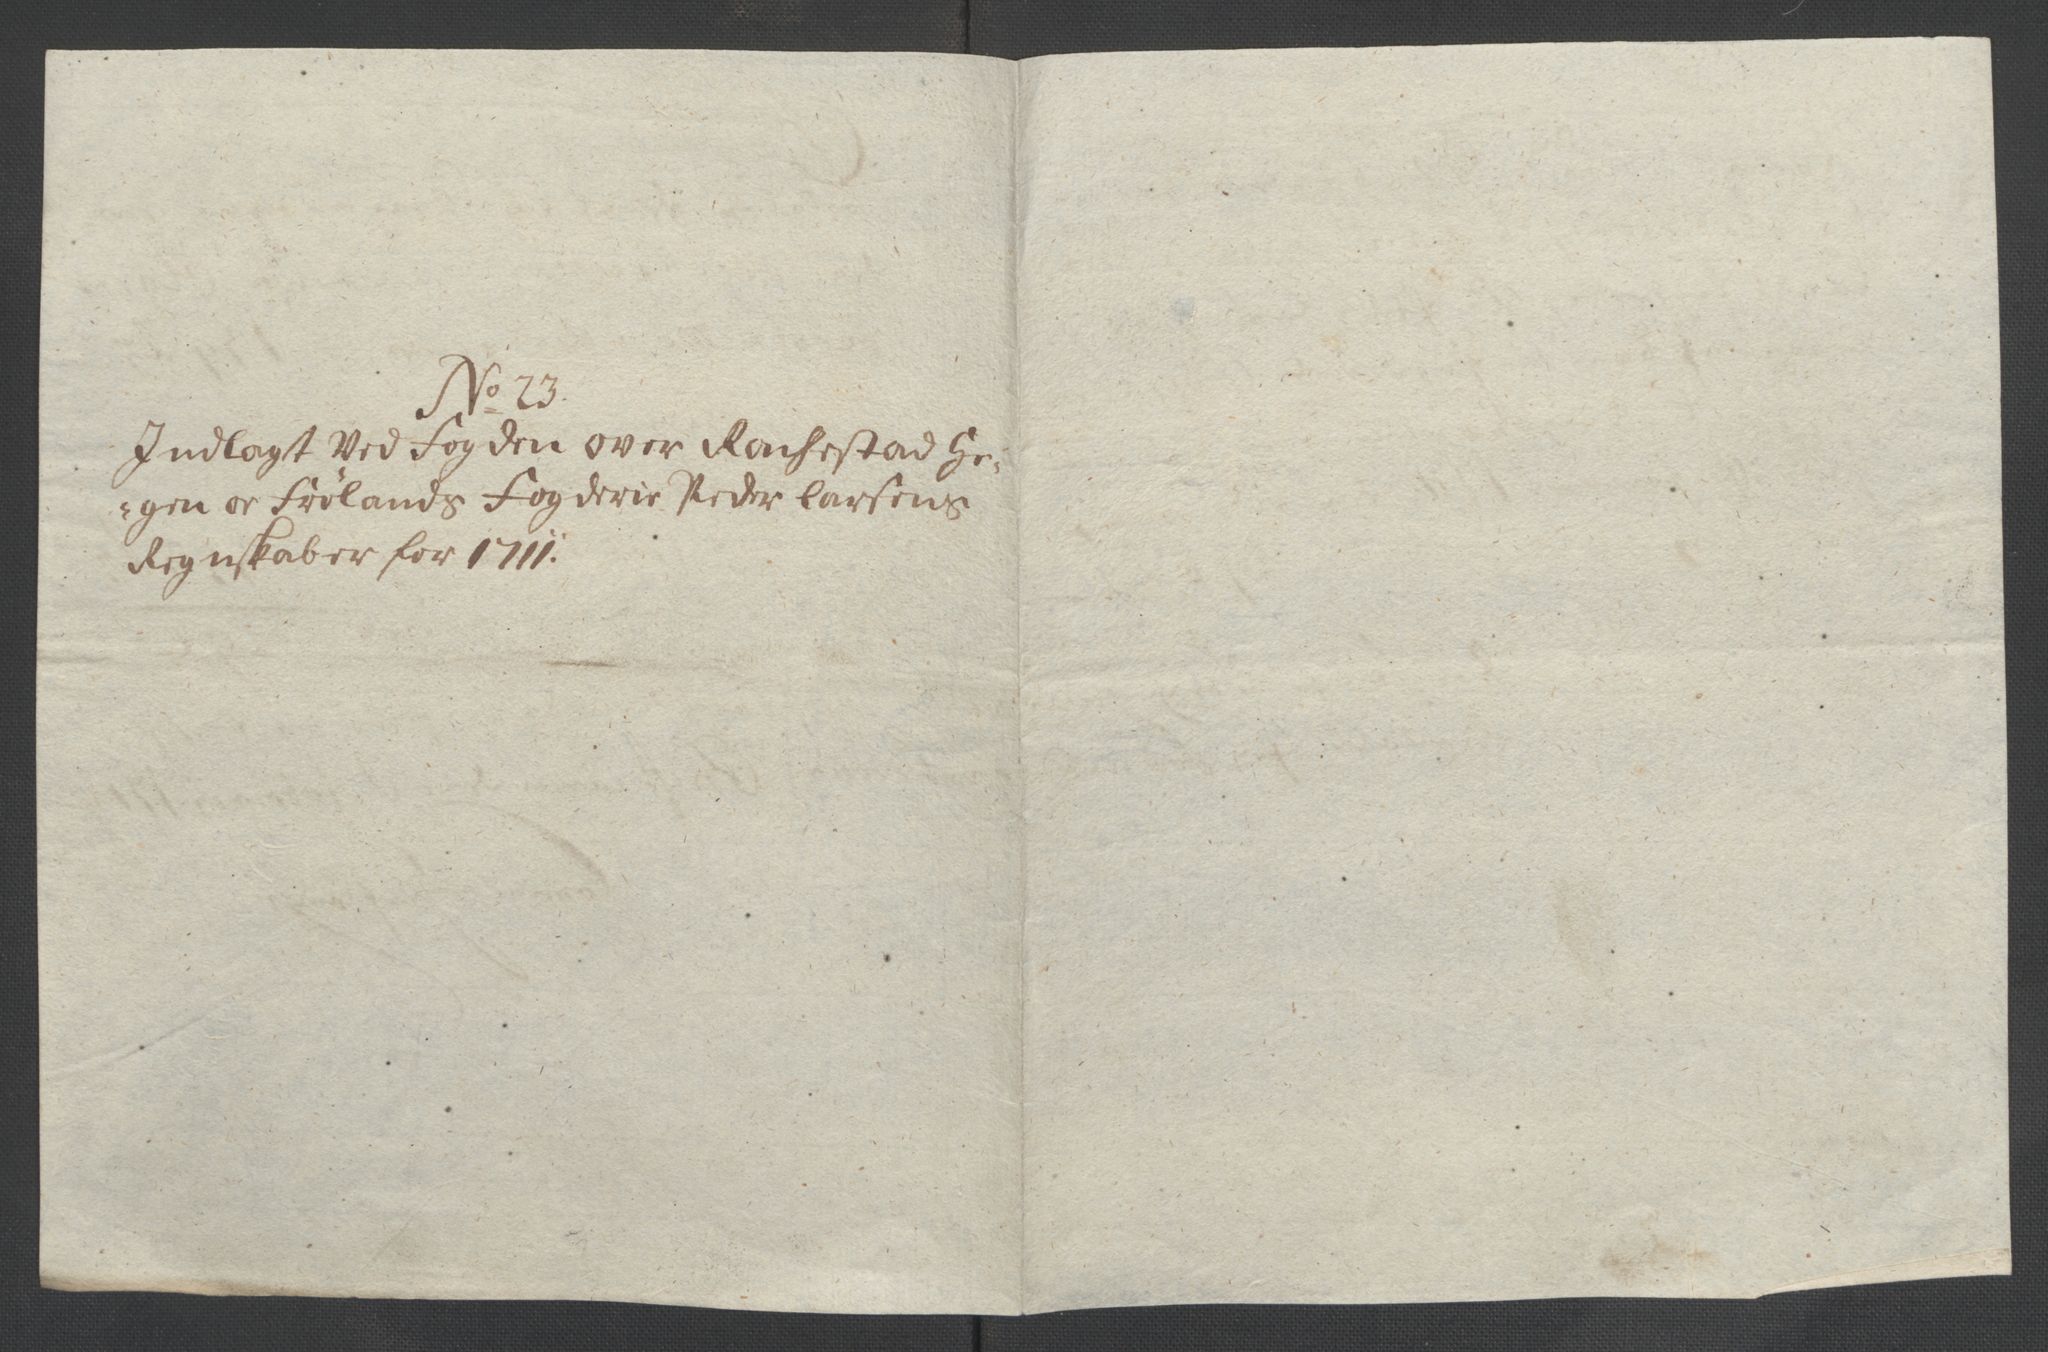 No 23.
Indlagt Ved Fogden over Rachestad He-
-gen oc Frölands Fogderie Peder Larsens
Regnskaber for 1711.